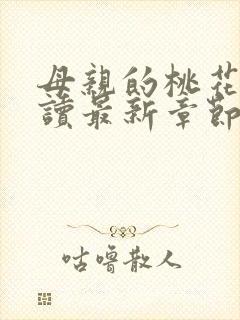 母親的桃花
讀最新章節
咕嚕散人